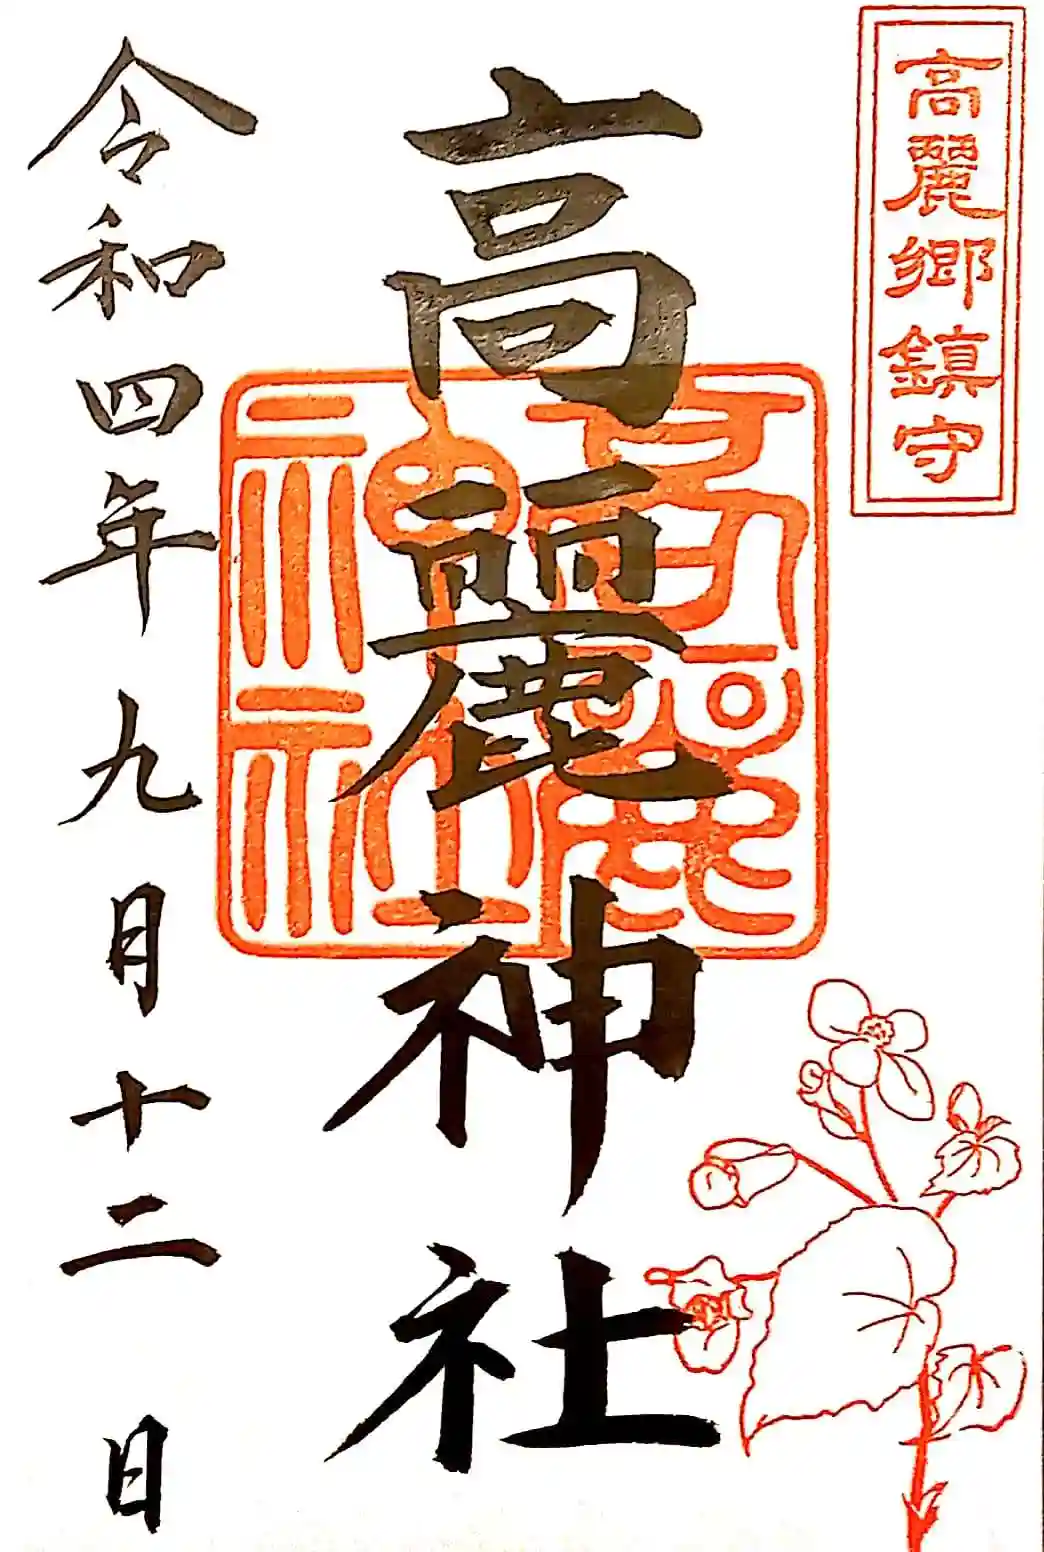 高麗郷鎮守
高麗神社
高麗
神社
令和四年九月十二日